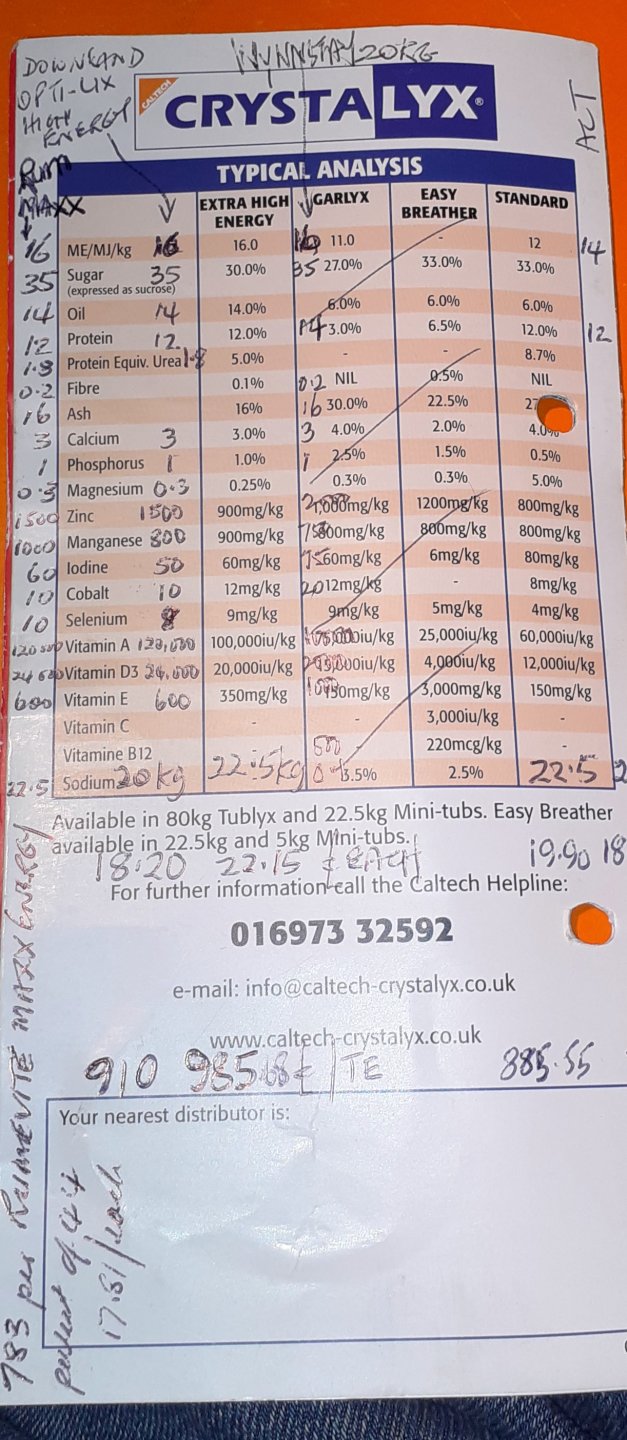 DOWNLAND
OPTI-LIX
HIGH
ENERGY
WYNNSTAY 20KG
ACT
RUM
MAXX
CALTECH
CRYSTALYX®
TYPICAL ANALYSIS
EXTRA HIGH ENERGY GARLYX EASY BREATHER STANDARD
16 ME/MJ/kg 16 16.0 16 11.0 - 12 14
35 Sugar 35 30.0% 35 27.0% 33.0% 33.0%
(expressed as sucrose)
14 Oil 14 14.0% 6.0% 6.0% 6.0%
12 Protein 12 12.0% 14 3.0% 6.5% 12.0% 12
1.8 Protein Equiv. Urea 1.8 5.0% - - 8.7%
0.2 Fibre 0.1% 0.2 NIL 0.5% NIL
16 Ash 16% 16 30.0% 22.5%
3 Calcium 3 3.0% 3 4.0% 2.0% 4.0%
1 Phosphorus 1 1.0% 1 2.5% 1.5% 0.5%
0.3 Magnesium 0.3 0.25% 0.3% 0.3% 5.0%
1500 Zinc 1500 900mg/kg 1,000mg/kg 1200mg/kg 800mg/kg
1000 Manganese 800 900mg/kg 800mg/kg 800mg/kg 800mg/kg
60 Iodine 50 60mg/kg 75 60mg/kg 6mg/kg 80mg/kg
10 Cobalt 10 12mg/kg 20 12mg/kg - 8mg/kg
10 Selenium 8 9mg/kg 9mg/kg 5mg/kg 4mg/kg
120000 Vitamin A 120,000 100,000iu/kg 25,000iu/kg 60,000iu/kg
24000 Vitamin D3 24,000 20,000iu/kg 4,000iu/kg 12,000iu/kg
600 Vitamin E 600 350mg/kg 150mg/kg 3,000mg/kg 150mg/kg
Vitamin C - - 3,000iu/kg -
Vitamine B12 500 - 220mcg/kg -
22.5 Sodium 20kg 22.5kg 3.5% 2.5% 22.5 2
Available in 80kg Tublyx and 22.5kg Mini-tubs. Easy Breather
available in 22.5kg and 5kg Mini-tubs.
18.20 22.15 £ EACH 19.90 18
For further information call the Caltech Helpline:
016973 32592
e-mail: info@caltech-crystalyx.co.uk
www.caltech-crystalyx.co.uk
910 985.68 £/TE 885.55
Your nearest distributor is:
783 per RUMEVITE MAXX ENERGY
of 44
17.81/each